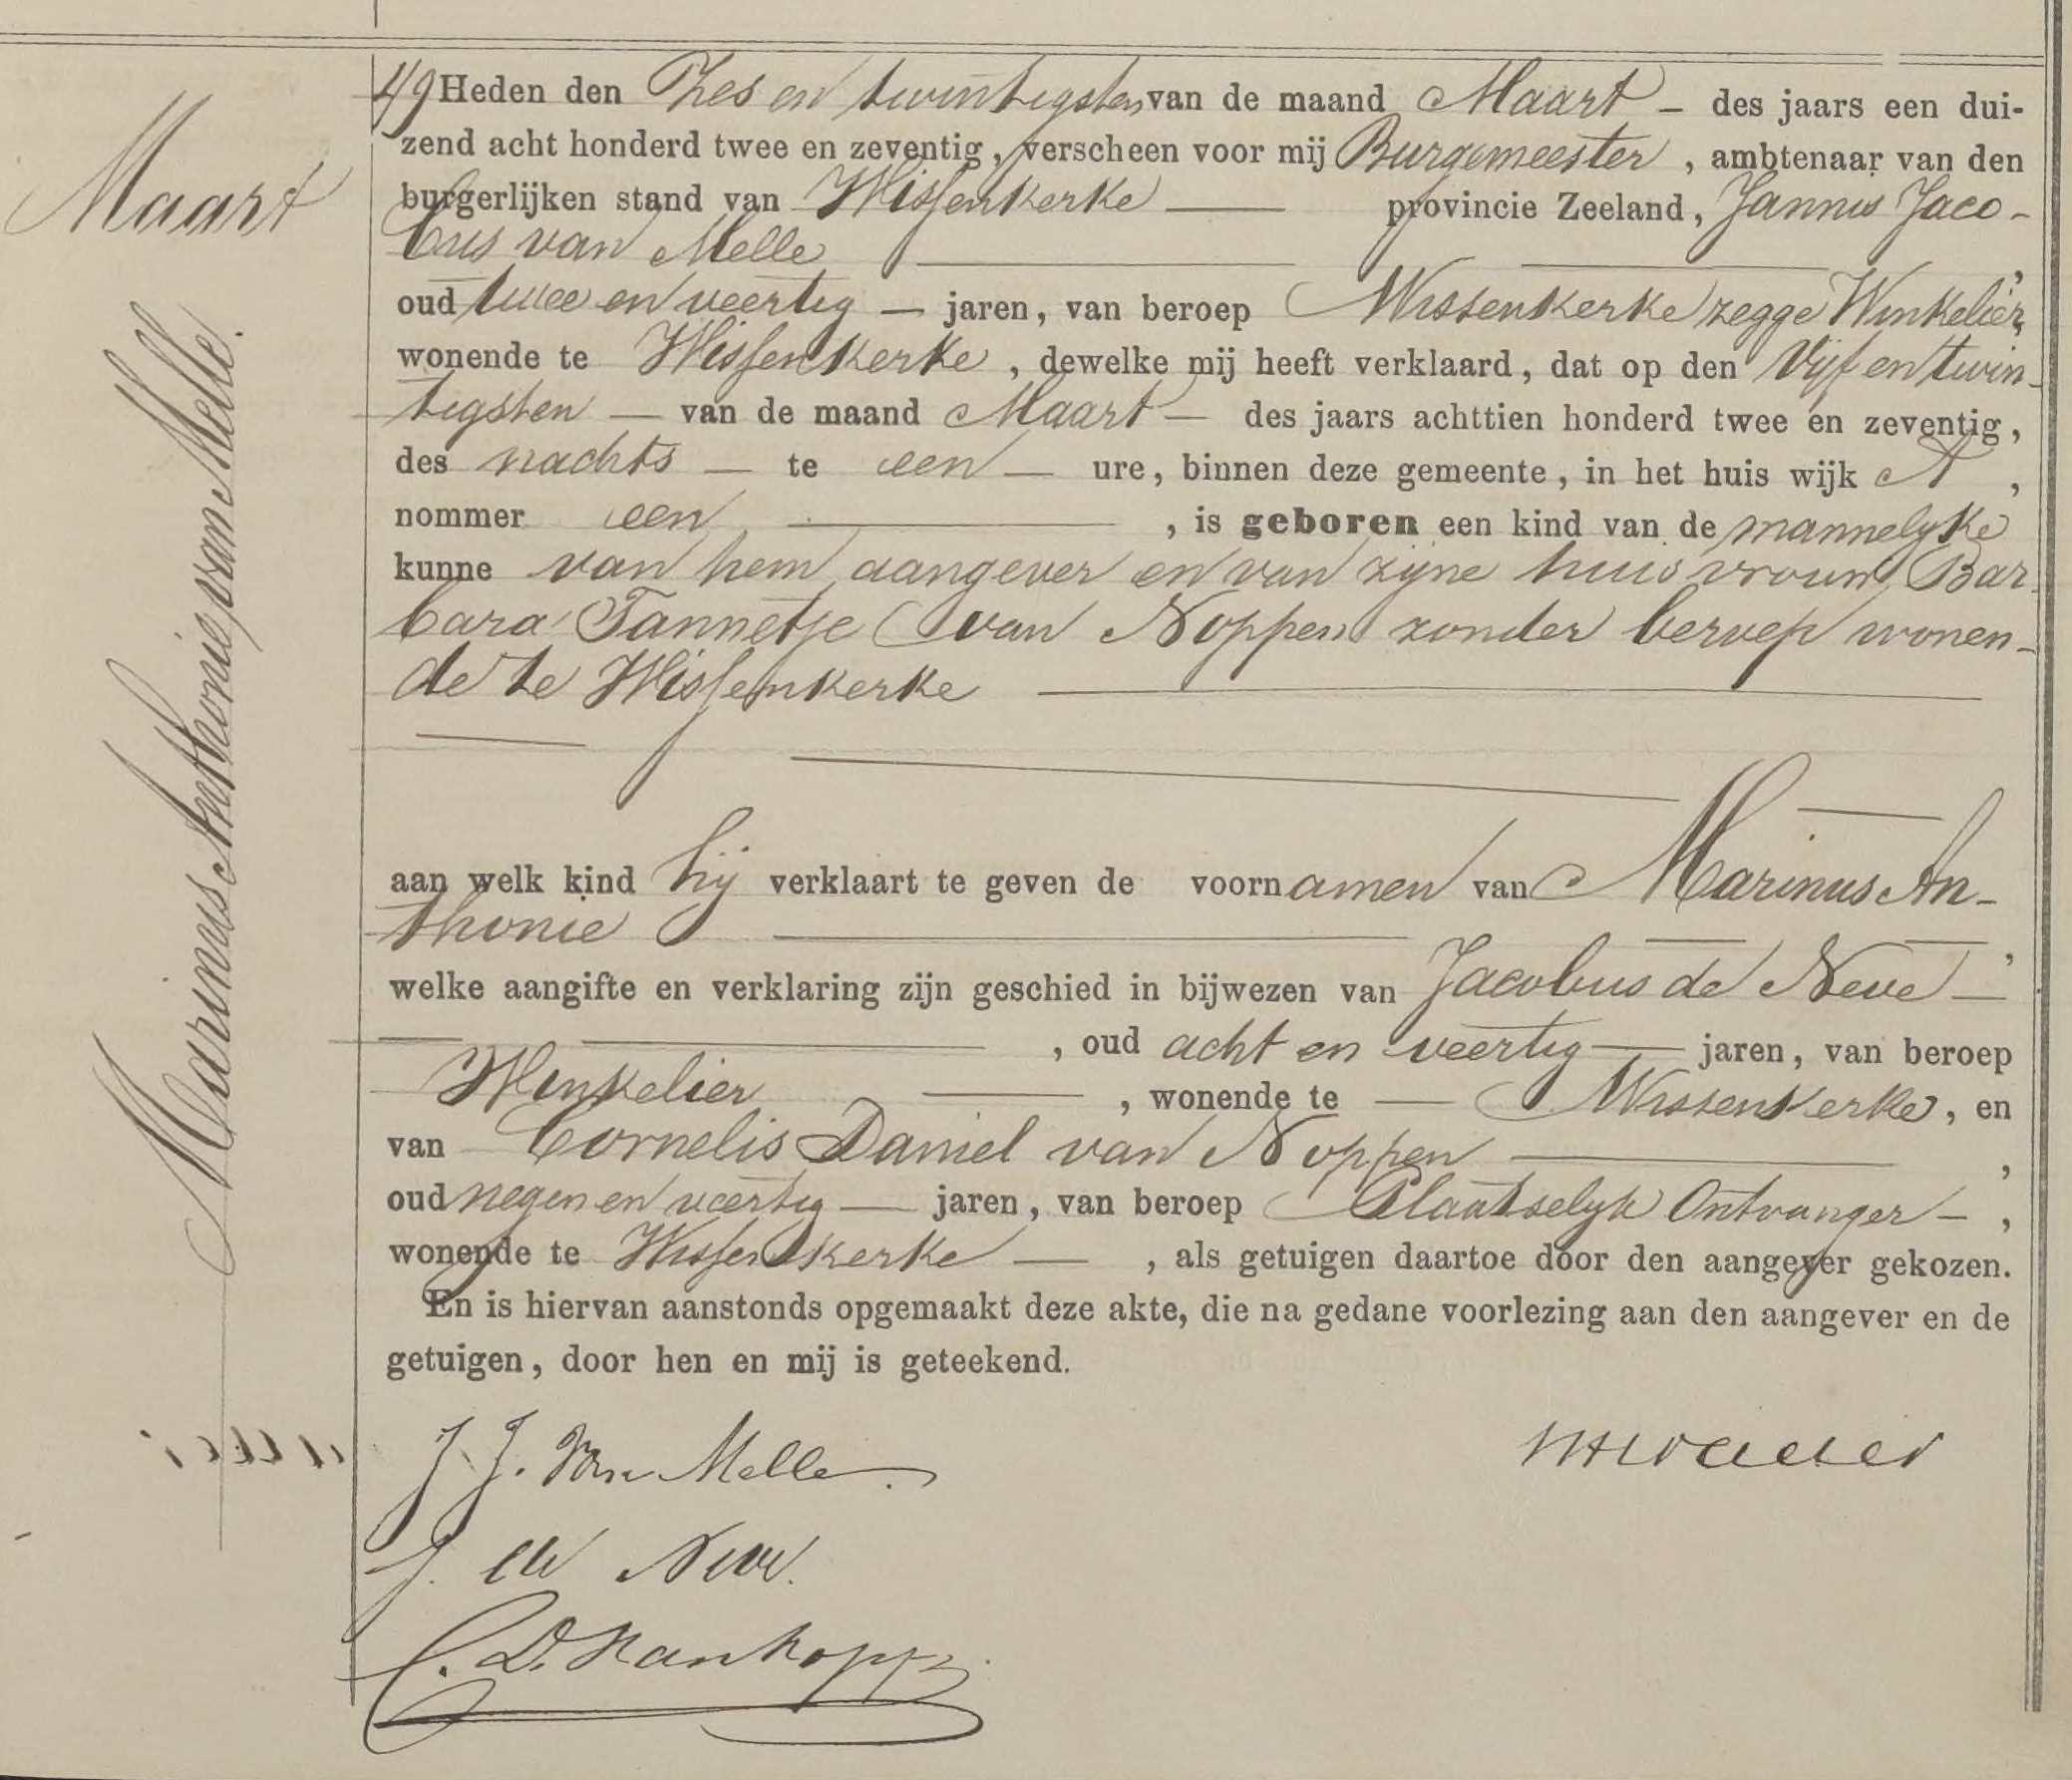 Maart
Marinus Anthonie van Melle.
49 Heden den Zes en twintigsten van de maand Maart – des jaars een dui-
zend acht honderd twee en zeventig, verscheen voor mij Burgemeester, ambtenaar van den
burgerlijken stand van Wissenkerke — provincie Zeeland, Jannis Jaco-
bus van Melle — — ,
oud twee en veertig — jaren, van beroep Wissenkerke zegge Winkelier,
wonende te Wissenkerke, dewelke mij heeft verklaard, dat op den Vijf en twin-
tigsten — van de maand Maart — des jaars achttien honderd twee en zeventig,
des nachts — te een — ure, binnen deze gemeente, in het huis wijk A,
nommer een —, is geboren een kind van de mannelyke
kunne van hem aangever en van zijne huisvrouw Bar
bara Tannetje van Noppen zonder beroep wonen-
de te Wissenkerke —
aan welk kind hij verklaart te geven de voornamen van Marinus An-
thonie — ,
welke aangifte en verklaring zijn geschied in bijwezen van Jacobus de Neve —
— , oud acht en veertig — jaren, van beroep
Winkelier — , wonende te — Wissenkerke, en
van Cornelis Daniel van Noppen — ,
oud negen en veertig — jaren, van beroep Plaatselyk Ontvanger — ,
wonende te Wissenkerke — , als getuigen daartoe door den aangever gekozen.
En is hiervan aanstonds opgemaakt deze akte, die na gedane voorlezing aan den aangever en de
getuigen, door hen en mij is geteekend.
J. J. Van Melle.
J. de Neve.
C. D. Van Noppen